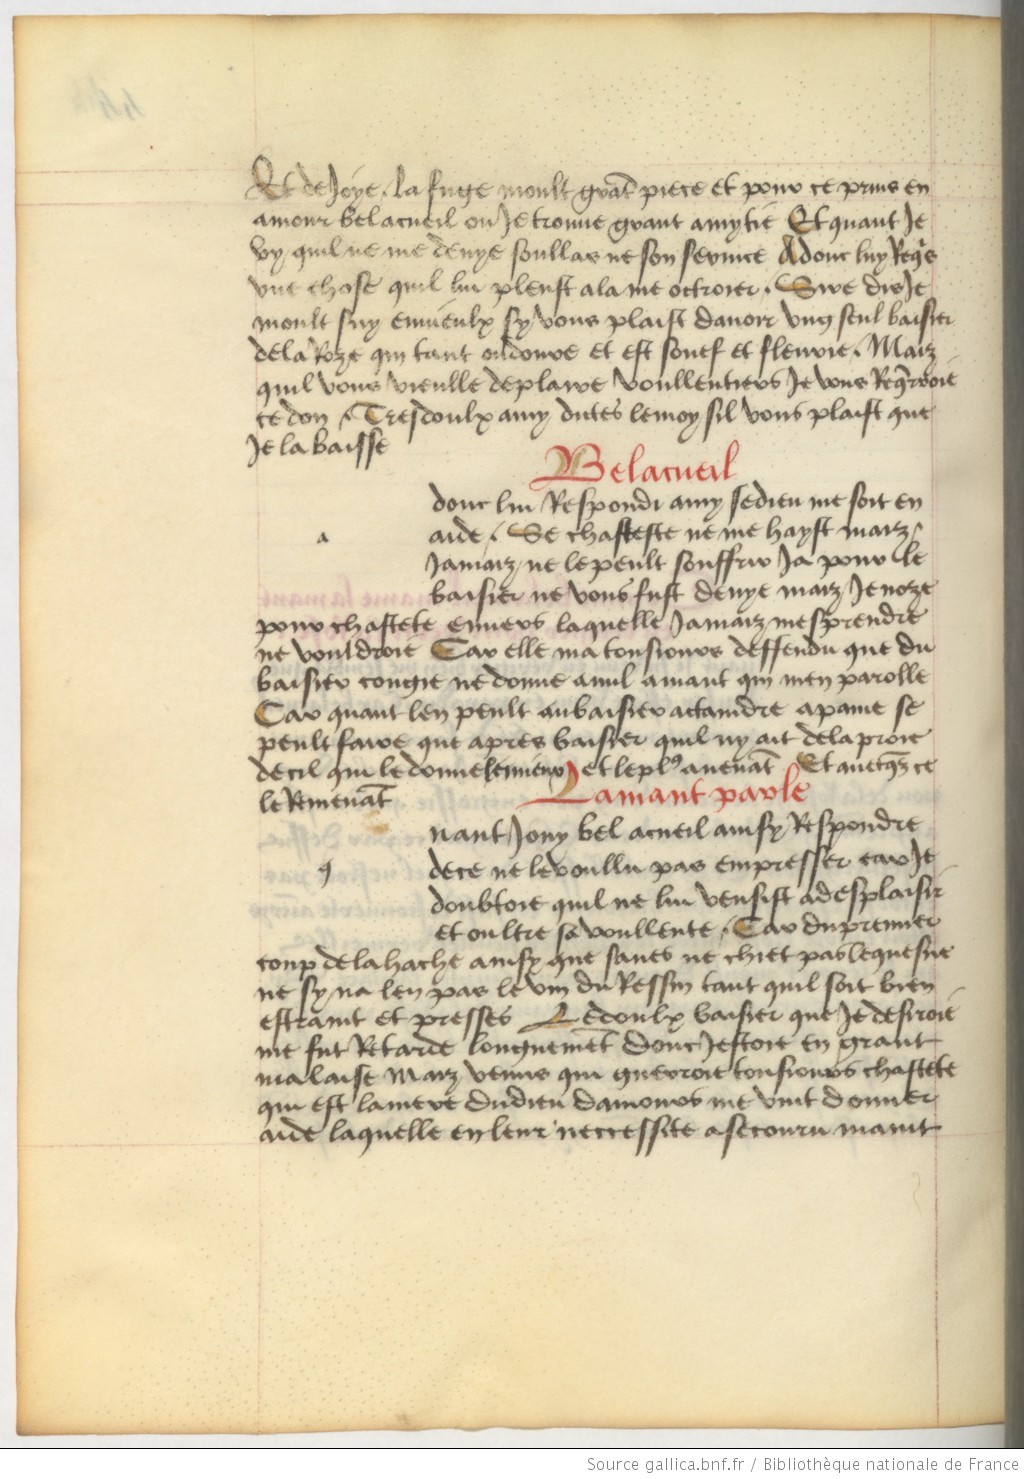 Et de Joye . la fuge moult grāt piece et pour ce prins en
amour bel acueil ou Je trouue grant amytie Et quant Je
vy quil ne me denye soullas ne son seruice Adonc luy Req̄s
vne chose quil lui pleust a la me octroier . Sire dis Je
moult suy enuieulx sy vous plaist dauoir vng seul baisier
de la Roze qui tant oudoure et est souef et fleurie . Maiz
quil vous vieulle deplaire voullentiers Je vous Req̄rroie
ce don . Tresdoulx amy dittes le moy sil vous plaist que
Je la baisse
Belacueil
donc lui Respondi amy se dieu me soit en
a aide . Se chasteste ne me hayst maiz
Jamaiz ne le peult souffrir Ja pour le
baisier ne vous fust denye maiz Je noze
pour chastete enuers laquelle Jamaiz mesprendre
ne vouldroie Car elle ma tousiours deffendu que du
baisier congie ne donne a nul amant qui men parolle
Car quant len peult au baisier actaindre a paine se
peult faire que apres baisier quil ny ait de la proie
de cil qui le donne et le plꝰ auenāt Et auecq̄s ce
le Remenāt
Lamant parle
nant Jouy bel acueil ainsy Respondre
q de ce ne le voullu pas empresser car Je
doubtoie quil ne lui vensist a desplaisir
et oultre sa voullente . Car du premier
coup de la hache ainsy que saues ne chiet pas le quesne
ne sy na len pas le vin du Ressin tant quil soit bien
estraint et presses Le doulx baisier que Je desiroie
me fut Retarde longuemēt Donc Jestoie en grant
malaise Maiz venus qui guerroie tousiours chastete
qui est la mere du dieu damours me vint donner
aide laquelle en leur neccessite a secouru maint